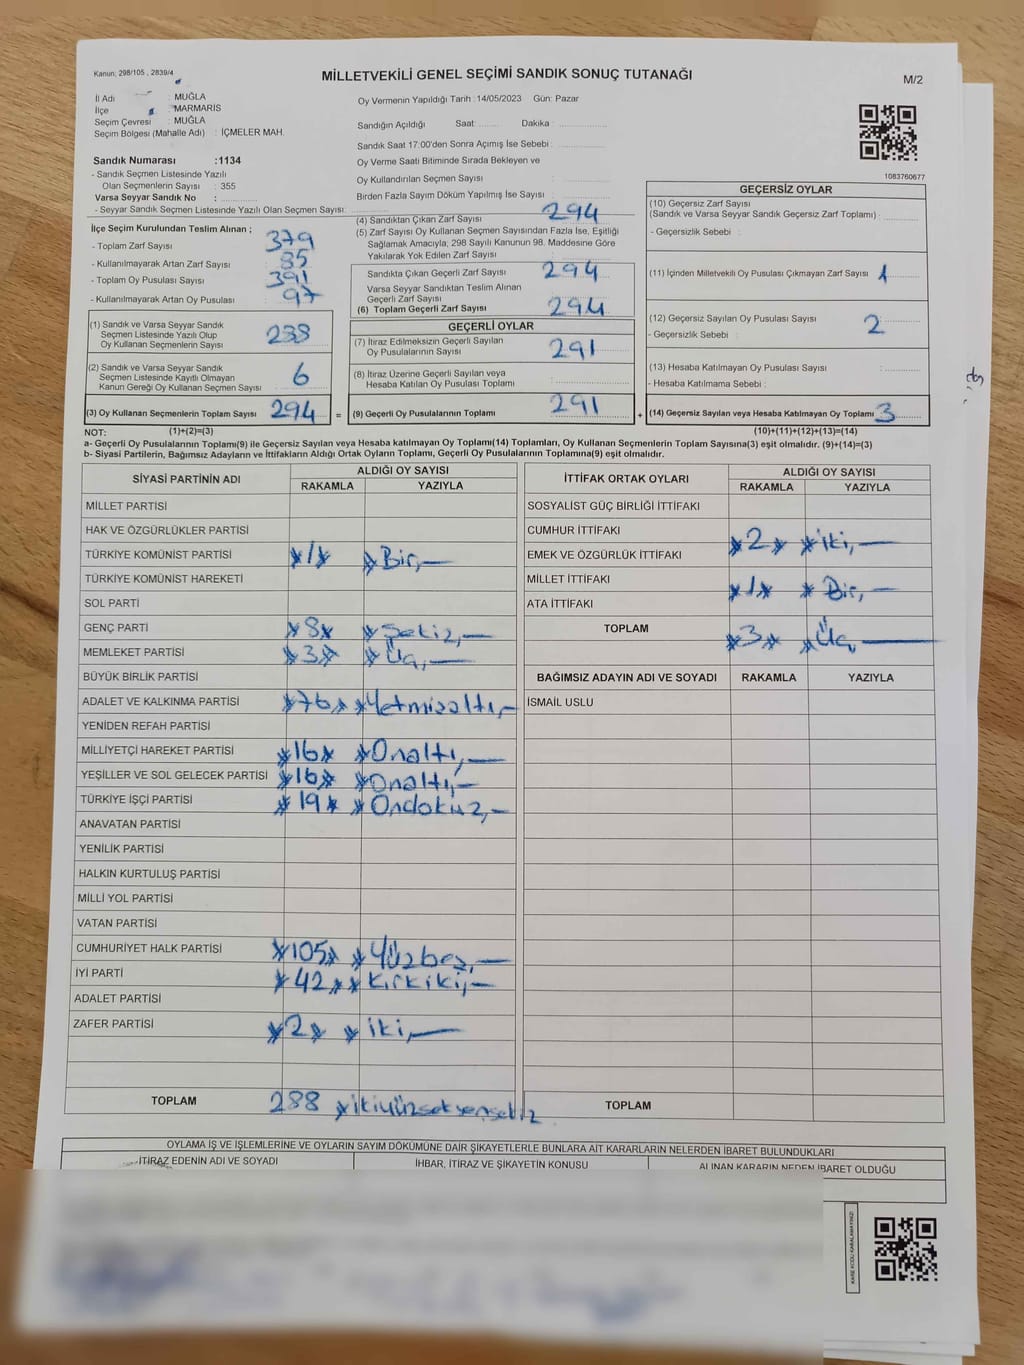 Kanun; 298/105 , 2839/4
MİLLETVEKİLİ GENEL SEÇİMİ SANDIK SONUÇ TUTANAĞI
M/2
İl Adı : MUĞLA
İlçe : MARMARİS
Seçim Çevresi : MUĞLA
Seçim Bölgesi (Mahalle Adı) : İÇMELER MAH.
Sandık Numarası :1134
- Sandık Seçmen Listesinde Yazılı
Olan Seçmenlerin Sayısı : 355
Varsa Seyyar Sandık No :
- Seyyar Sandık Seçmen Listesinde Yazılı Olan Seçmen Sayısı:
Oy Vermenin Yapıldığı Tarih :14/05/2023 Gün: Pazar
Sandığın Açıldığı Saat: Dakika :
Sandık Saat 17:00'den Sonra Açımış İse Sebebi :
Oy Verme Saati Bitiminde Sırada Bekleyen ve
Oy Kullandırılan Seçmen Sayısı :
Birden Fazla Sayım Döküm Yapılmış İse Sayısı :
1083760677
İlçe Seçim Kurulundan Teslim Alınan ;
- Toplam Zarf Sayısı 379
- Kullanılmayarak Artan Zarf Sayısı : 85
- Toplam Oy Pusulası Sayısı : 391
- Kullanılmayarak Artan Oy Pusulası : 97
(1) Sandık ve Varsa Seyyar Sandık
Seçmen Listesinde Yazılı Olup
Oy Kullanan Seçmenlerin Sayısı 288
(2) Sandık ve Varsa Seyyar Sandık
Seçmen Listesinde Kayıtlı Olmayan
Kanun Gereği Oy Kullanan Seçmen Sayısı : 6
(3) Oy Kullanan Seçmenlerin Toplam Sayısı 294 =
(4) Sandıktan Çıkan Zarf Sayısı 294
(5) Zarf Sayısı Oy Kullanan Seçmen Sayısından Fazla İse, Eşitliği
Sağlamak Amacıyla; 298 Sayılı Kanunun 98. Maddesine Göre
Yakılarak Yok Edilen Zarf Sayısı :
Sandıkta Çıkan Geçerli Zarf Sayısı : 294
Varsa Seyyar Sandıktan Teslim Alınan
Geçerli Zarf Sayısı :
(6) Toplam Geçerli Zarf Sayısı : 294
GEÇERLİ OYLAR
(7) İtiraz Edilmeksizin Geçerli Sayılan
Oy Pusulalarının Sayısı : 291
(8) İtiraz Üzerine Geçerli Sayılan veya
Hesaba Katılan Oy Pusulası Toplamı :
(9) Geçerli Oy Pusulalarının Toplamı : 291 +
GEÇERSİZ OYLAR
(10) Geçersiz Zarf Sayısı
(Sandık ve Varsa Seyyar Sandık Geçersiz Zarf Toplamı) :
- Geçersizlik Sebebi :
(11) İçinden Milletvekili Oy Pusulası Çıkmayan Zarf Sayısı : 1
(12) Geçersiz Sayılan Oy Pusulası Sayısı : 2
- Geçersizlik Sebebi :
(13) Hesaba Katılmayan Oy Pusulası Sayısı :
- Hesaba Katılmama Sebebi :
(14) Geçersiz Sayılan veya Hesaba Katılmayan Oy Toplamı : 3
NOT: (1)+(2)=(3) (10)+(11)+(12)+(13)=(14)
a- Geçerli Oy Pusulalarının Toplamı(9) ile Geçersiz Sayılan veya Hesaba katılmayan Oy Toplamı(14) Toplamları, Oy Kullanan Seçmenlerin Toplam Sayısına(3) eşit olmalıdır. (9)+(14)=(3)
b- Siyasi Partilerin, Bağımsız Adayların ve İttifakların Aldığı Ortak Oyların Toplamı, Geçerli Oy Pusulalarının Toplamına(9) eşit olmalıdır.
SİYASİ PARTİNİN ADI ALDIĞI OY SAYISI
RAKAMLA YAZIYLA
MİLLET PARTİSİ
HAK VE ÖZGÜRLÜKLER PARTİSİ
TÜRKİYE KOMÜNİST PARTİSİ *1* *Bir,—
TÜRKİYE KOMÜNİST HAREKETİ
SOL PARTİ
GENÇ PARTİ *8* *Sekiz,—
MEMLEKET PARTİSİ *3* *Üç,—
BÜYÜK BİRLİK PARTİSİ
ADALET VE KALKINMA PARTİSİ *76* *Yetmişaltı,—
YENİDEN REFAH PARTİSİ
MİLLİYETÇİ HAREKET PARTİSİ *16* *Onaltı,—
YEŞİLLER VE SOL GELECEK PARTİSİ *16* *Onaltı,—
TÜRKİYE İŞÇİ PARTİSİ *19* *Ondokuz,—
ANAVATAN PARTİSİ
YENİLİK PARTİSİ
HALKIN KURTULUŞ PARTİSİ
MİLLİ YOL PARTİSİ
VATAN PARTİSİ
CUMHURİYET HALK PARTİSİ *105* *Yüzbeş,—
İYİ PARTİ *42* *Kırkiki,—
ADALET PARTİSİ
ZAFER PARTİSİ *2* *iki,—
TOPLAM 288 *ikiyüzseksensekiz
İTTİFAK ORTAK OYLARI ALDIĞI OY SAYISI
RAKAMLA YAZIYLA
SOSYALİST GÜÇ BİRLİĞİ İTTİFAKI
CUMHUR İTTİFAKI *2* *iki,—
EMEK VE ÖZGÜRLÜK İTTİFAKI
MİLLET İTTİFAKI *1* *Bir,—
ATA İTTİFAKI
TOPLAM *3* *Üç,—
BAĞIMSIZ ADAYIN ADI VE SOYADI RAKAMLA YAZIYLA
İSMAİL USLU
TOPLAM
OYLAMA İŞ VE İŞLEMLERİNE VE OYLARIN SAYIM DÖKÜMÜNE DAİR ŞİKAYETLERLE BUNLARA AİT KARARLARIN NELERDEN İBARET BULUNDUKLARI
İTİRAZ EDENİN ADI VE SOYADI İHBAR, İTİRAZ VE ŞİKAYETİN KONUSU ALINAN KARARIN NEDEN İBARET OLDUĞU
KARE KODU KARALAMAYINIZ!